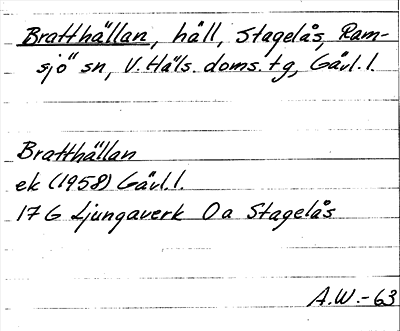 Bratthällan, häll, Stagelås, Ram-
sjö sn, V. Häls. doms. tg, Gävl. l.
Bratthällan
ek (1958) Gävl. l.
17 G Ljungaverk 0 a Stagelås
A.W.-63